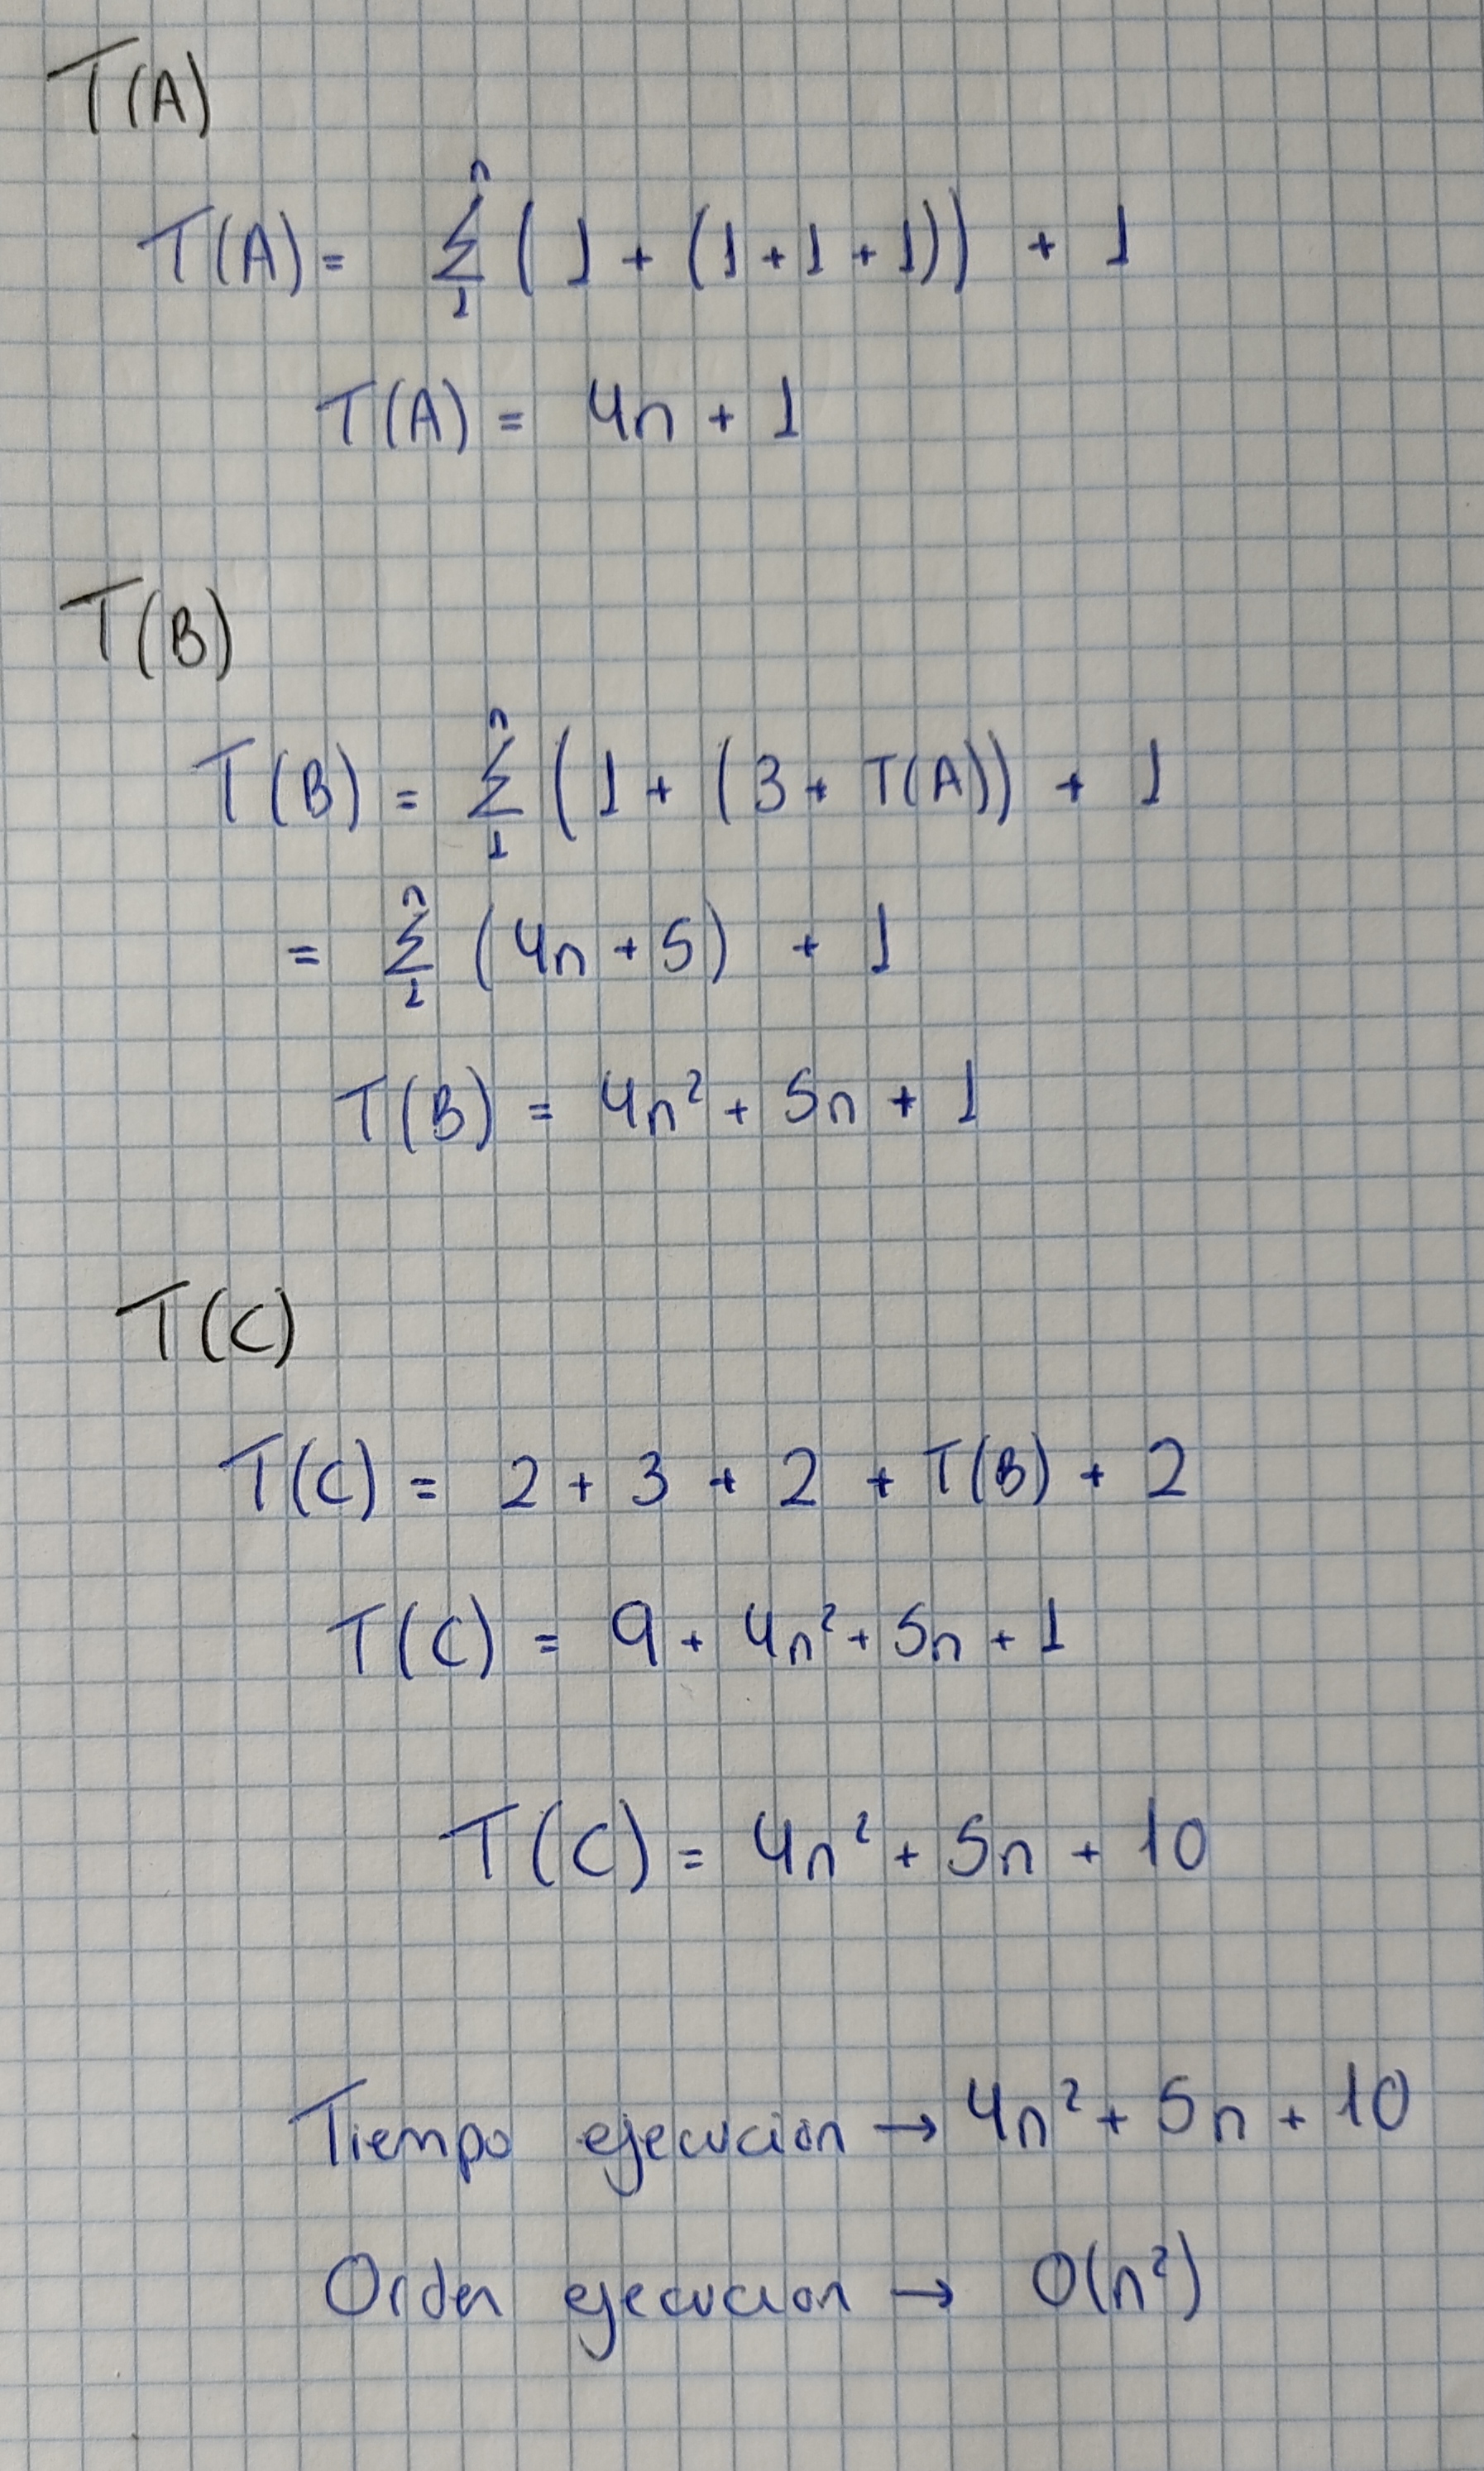 T(A)
T(A) = Σ₁ⁿ (1 + (1 + 1 + 1)) + 1
T(A) = 4n + 1
T(B)
T(B) = Σ₁ⁿ (1 + (3 + T(A)) + 1
= Σ₁ⁿ (4n + 5) + 1
T(B) = 4n² + 5n + 1
T(C)
T(C) = 2 + 3 + 2 + T(B) + 2
T(C) = 9 + 4n² + 5n + 1
T(C) = 4n² + 5n + 10
Tiempo ejecucion → 4n² + 5n + 10
Orden ejecucion → O(n²)